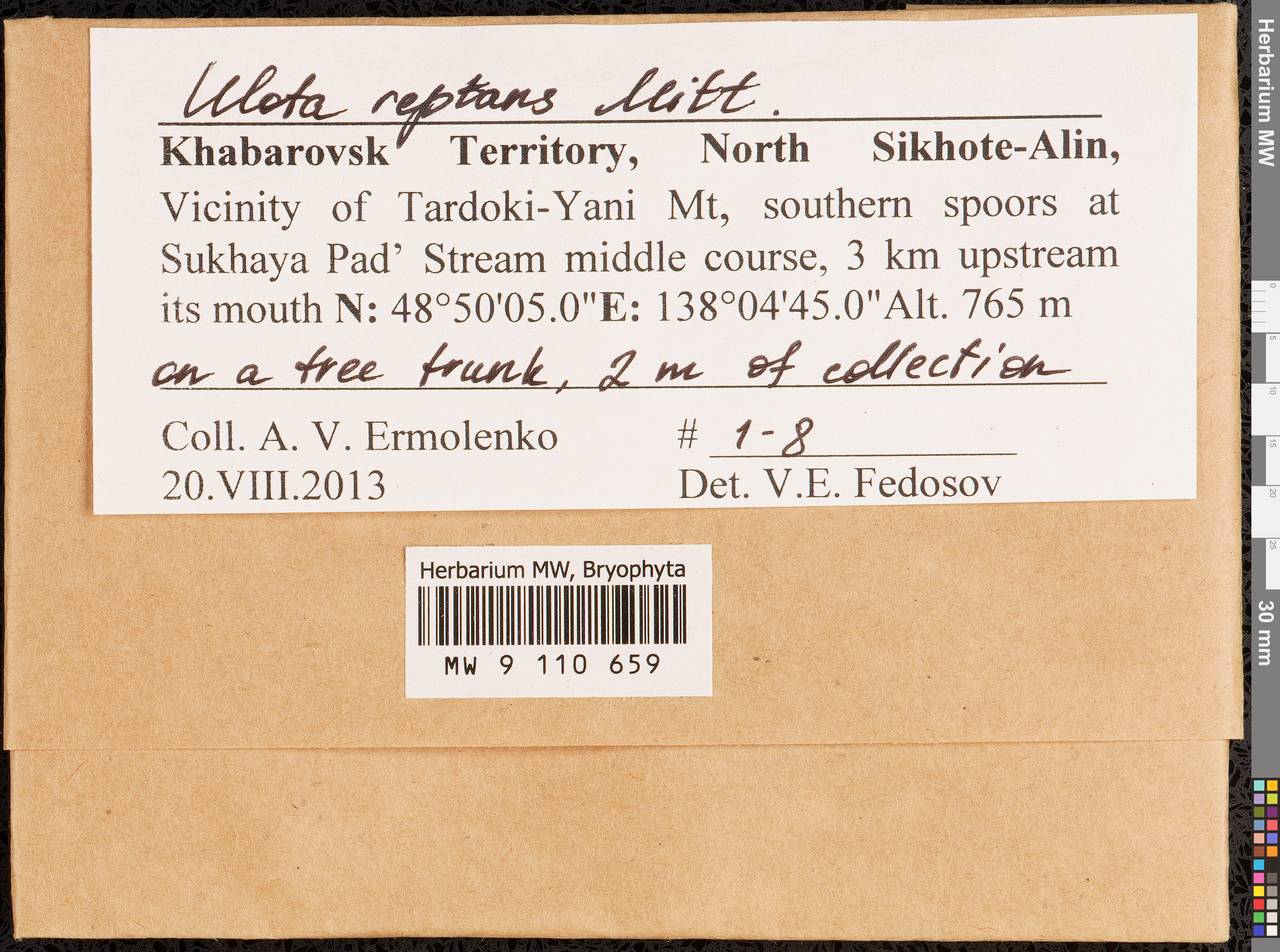 Ulota reptans Mitt.
Khabarovsk Territory, North Sikhote-Alin,
Vicinity of Tardoki-Yani Mt, southern spoors at
Sukhaya Pad’ Stream middle course, 3 km upstream
its mouth N: 48°50'05.0"E: 138°04'45.0"Alt. 765 m
on a tree trunk, 2 m of collection
Coll. A. V. Ermolenko # 1-8
20.VIII.2013 Det. V.E. Fedosov
Herbarium MW, Bryophyta
MW 9 110 659
Herbarium MW
0
5
10
15
20
25
30 mm